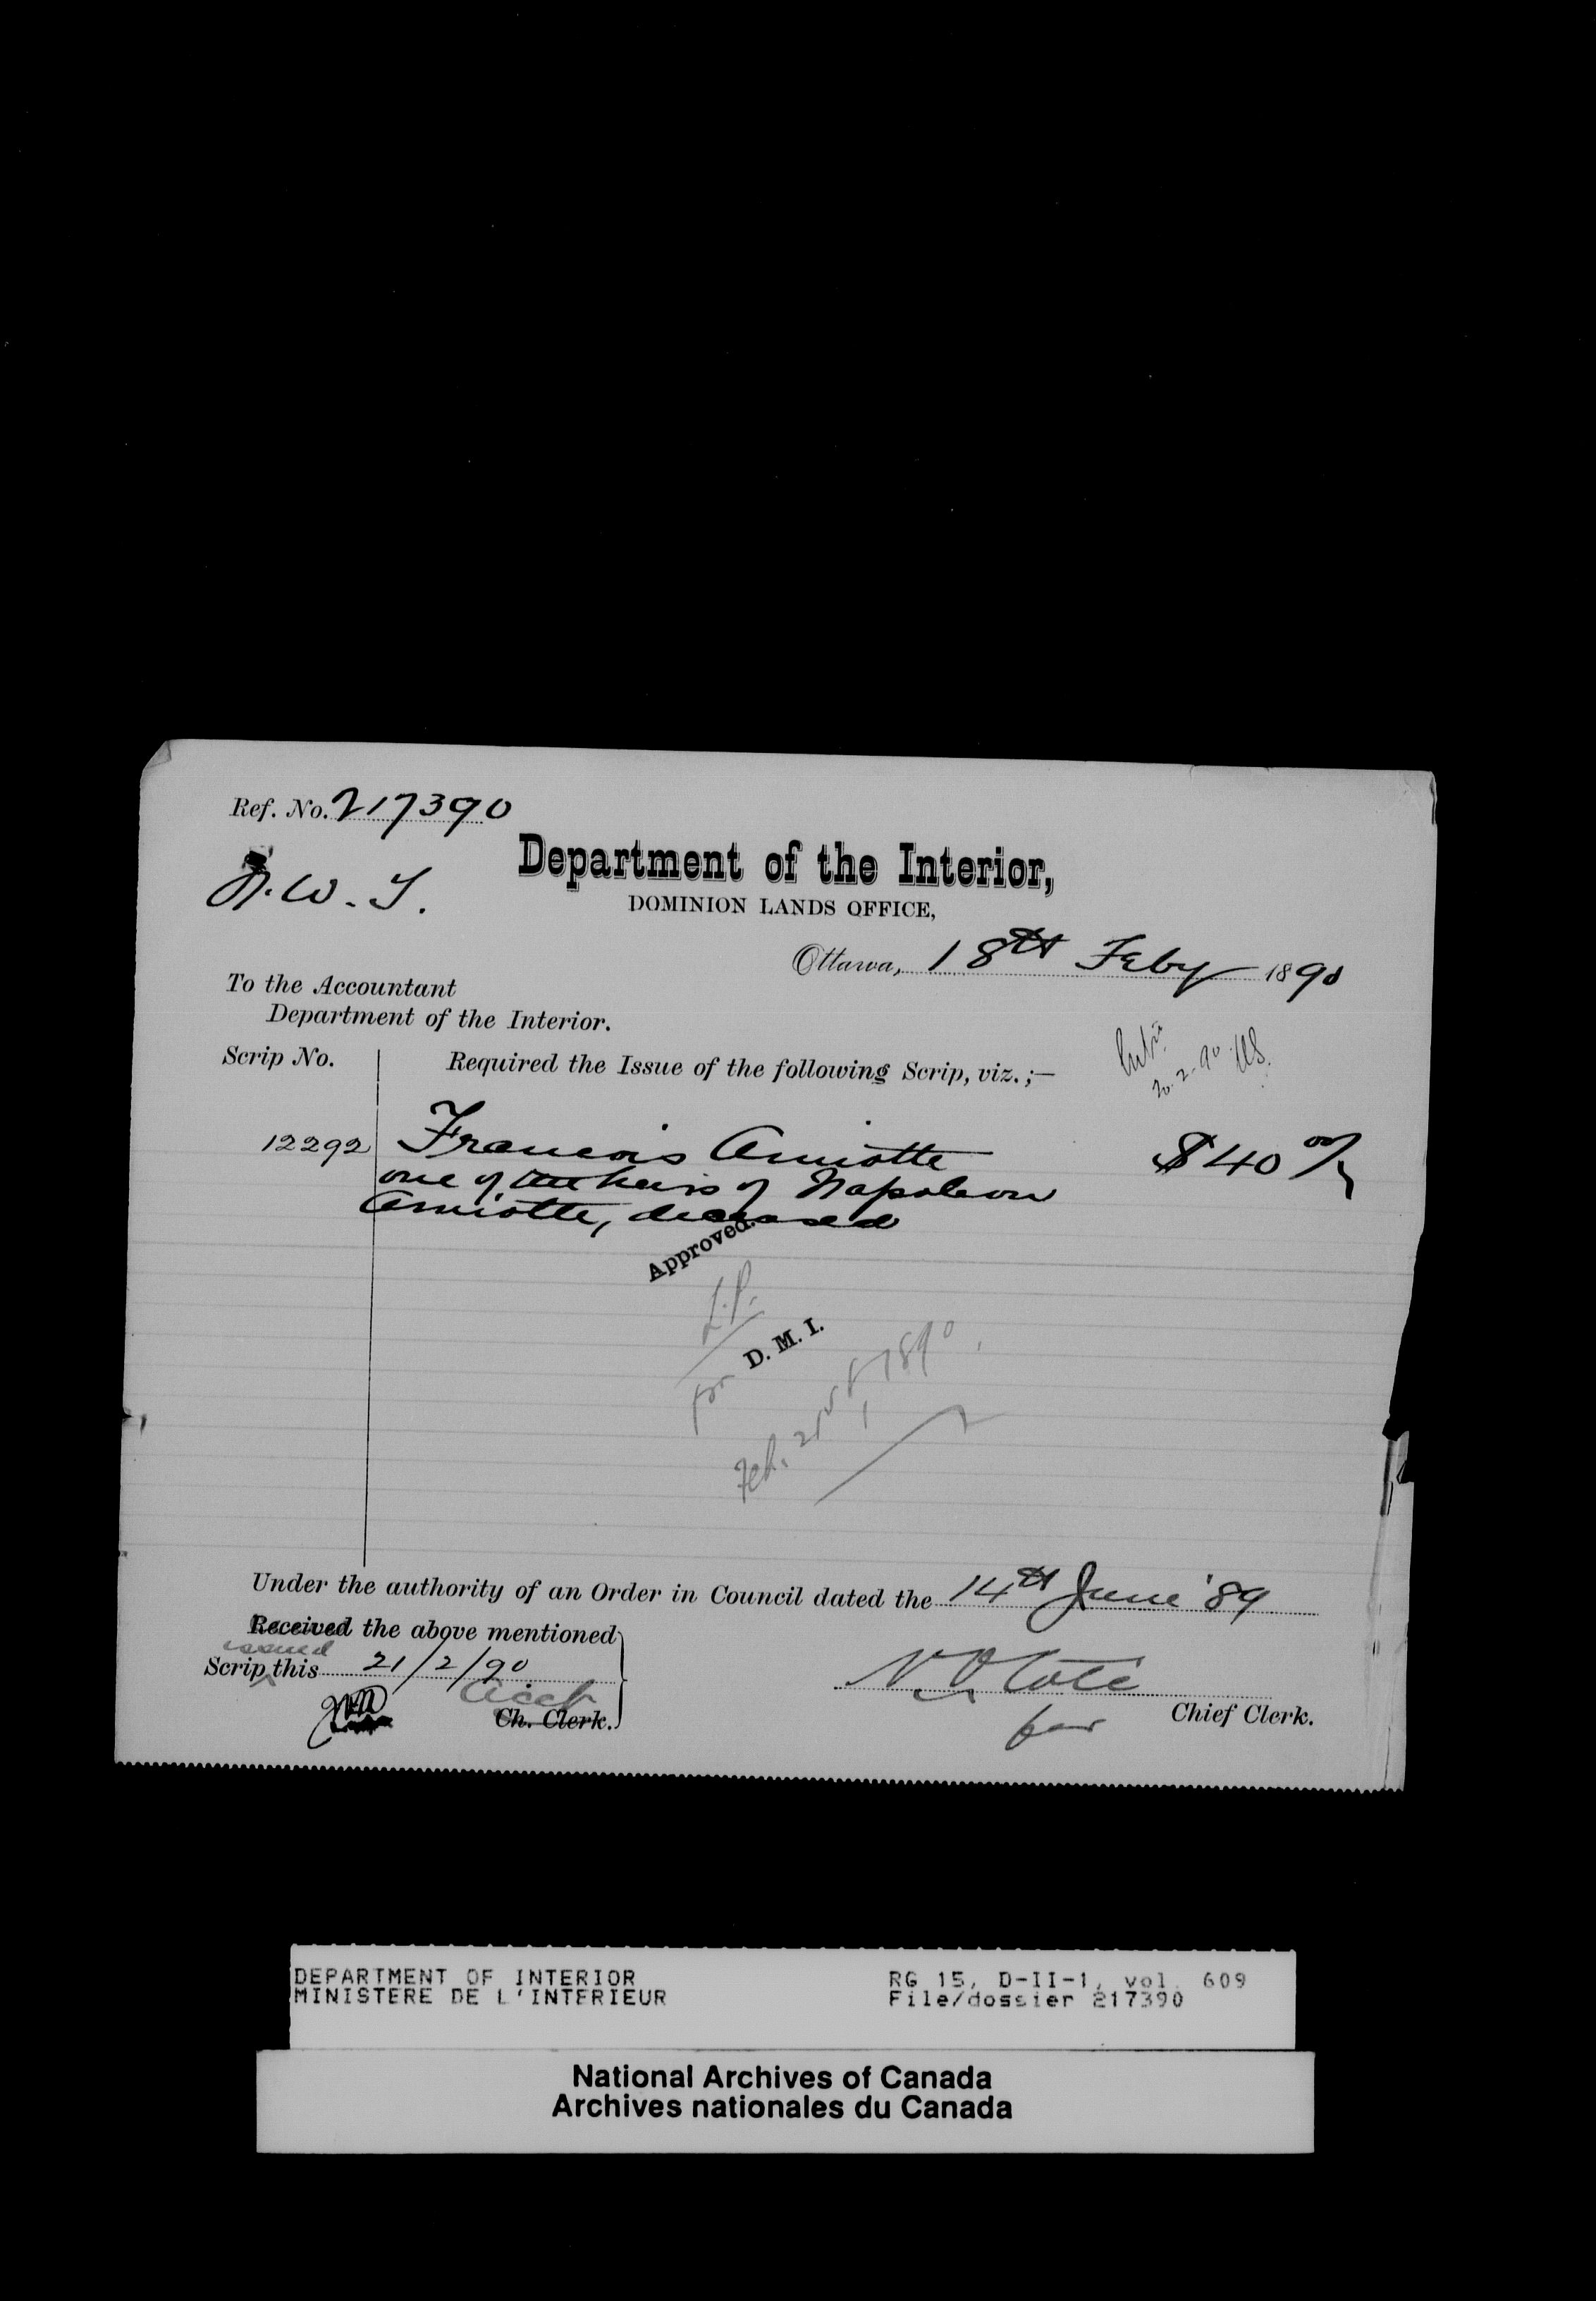 Ref. No. 217390
N.W.T.
Department of the Interior,
DOMINION LANDS OFFICE,
Ottawa, 18th Feby 1890
To the Accountant
Department of the Interior.
Scrip No.
Required the Issue of the following Scrip, viz.;—
20-2-90
12292 Francois Amiotte $40 00/
one of the heirs of Napoleon
Amiotte, deceased
Approved.
L.P.
for D. M. I.
Feb. 21st, 1890.
Under the authority of an Order in Council dated the 14th June '89
Received the above mentioned
issued
Scrip this 21/2/90
Acct
Ch. Clerk.
N O Coté
for Chief Clerk.
DEPARTMENT OF INTERIOR RG 15, D-II-1, vol. 609
MINISTERE DE L'INTERIEUR File/dossier 217390
National Archives of Canada
Archives nationales du Canada